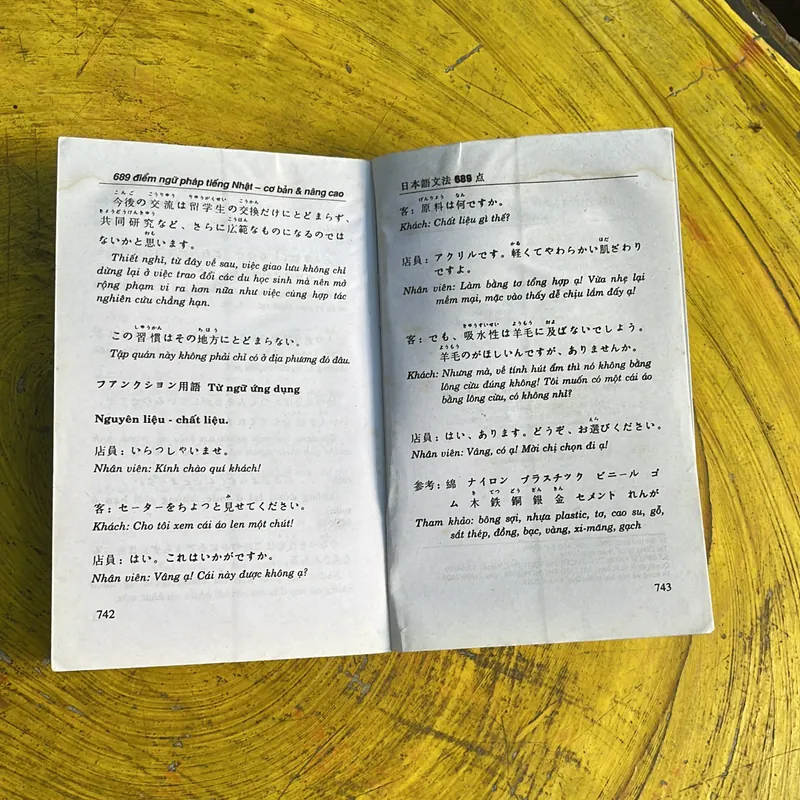 689 điểm ngữ pháp tiếng Nhật – cơ bản & nâng cao
こんご こうりゅう りゅうがくせい こうかん
今後の交流は留学生の交換だけにとどまらず、
きょうどうけんきゅう こうはん
共同研究など、さらに広範なものになるのでは
おも
ないかと思います。
Thiết nghĩ, từ đây về sau, việc giao lưu không chỉ
dừng lại ở việc trao đổi các du học sinh mà nên mở
rộng phạm vi ra hơn nữa như việc cùng hợp tác
nghiên cứu chẳng hạn.
しゅうかん ちほう
この習慣はその地方にとどまらない。
Tập quán này không phải chỉ có ở địa phương đó đâu.
フアンクシヨン用語 Từ ngữ ứng dụng
Nguyên liệu - chất liệu.
店員：いらつしやいませ。
Nhân viên: Kính chào quí khách!
み
客：セーターをちよつと見せてください。
Khách: Cho tôi xem cái áo len một chút!
店員：はい。これはいかがですか。
Nhân viên: Vâng ạ! Cái này được không ạ?
742
日本語文法 689 点
げんりょう なん
客：原料は何ですか。
Khách: Chất liệu gì thế?
かる はだ
店員：アクリルです。軽くてやわらかい肌ざわり
ですよ。
Nhân viên: Làm bằng tơ tổng hợp ạ! Vừa nhẹ lại
mềm mại, mặc vào thấy dễ chịu lắm đấy ạ!
きゅうすいせい ようもう およ
客：でも、吸水性は羊毛に及ばないでしよう。
ようもう
羊毛のがほしいんですが、ありませんか。
Khách: Nhưng mà, về tính hút ẩm thì nó không bằng
lông cừu đúng không! Tôi muốn có một cái áo
bằng lông cừu, có không nhỉ?
えら
店員：はい、あります。どうぞ、お選びください。
Nhân viên: Vâng, có ạ! Mời chị chọn đi ạ!
参考：綿 ナイロン プラスチツク ビニール ゴ
き てつ どう ぎん きん
ム 木 鉄 銅 銀 金 セメント れんが
Tham khảo: bông sợi, nhựa plastic, tơ, cao su, gỗ,
sắt thép, đồng, bạc, vàng, xi-măng, gạch
743